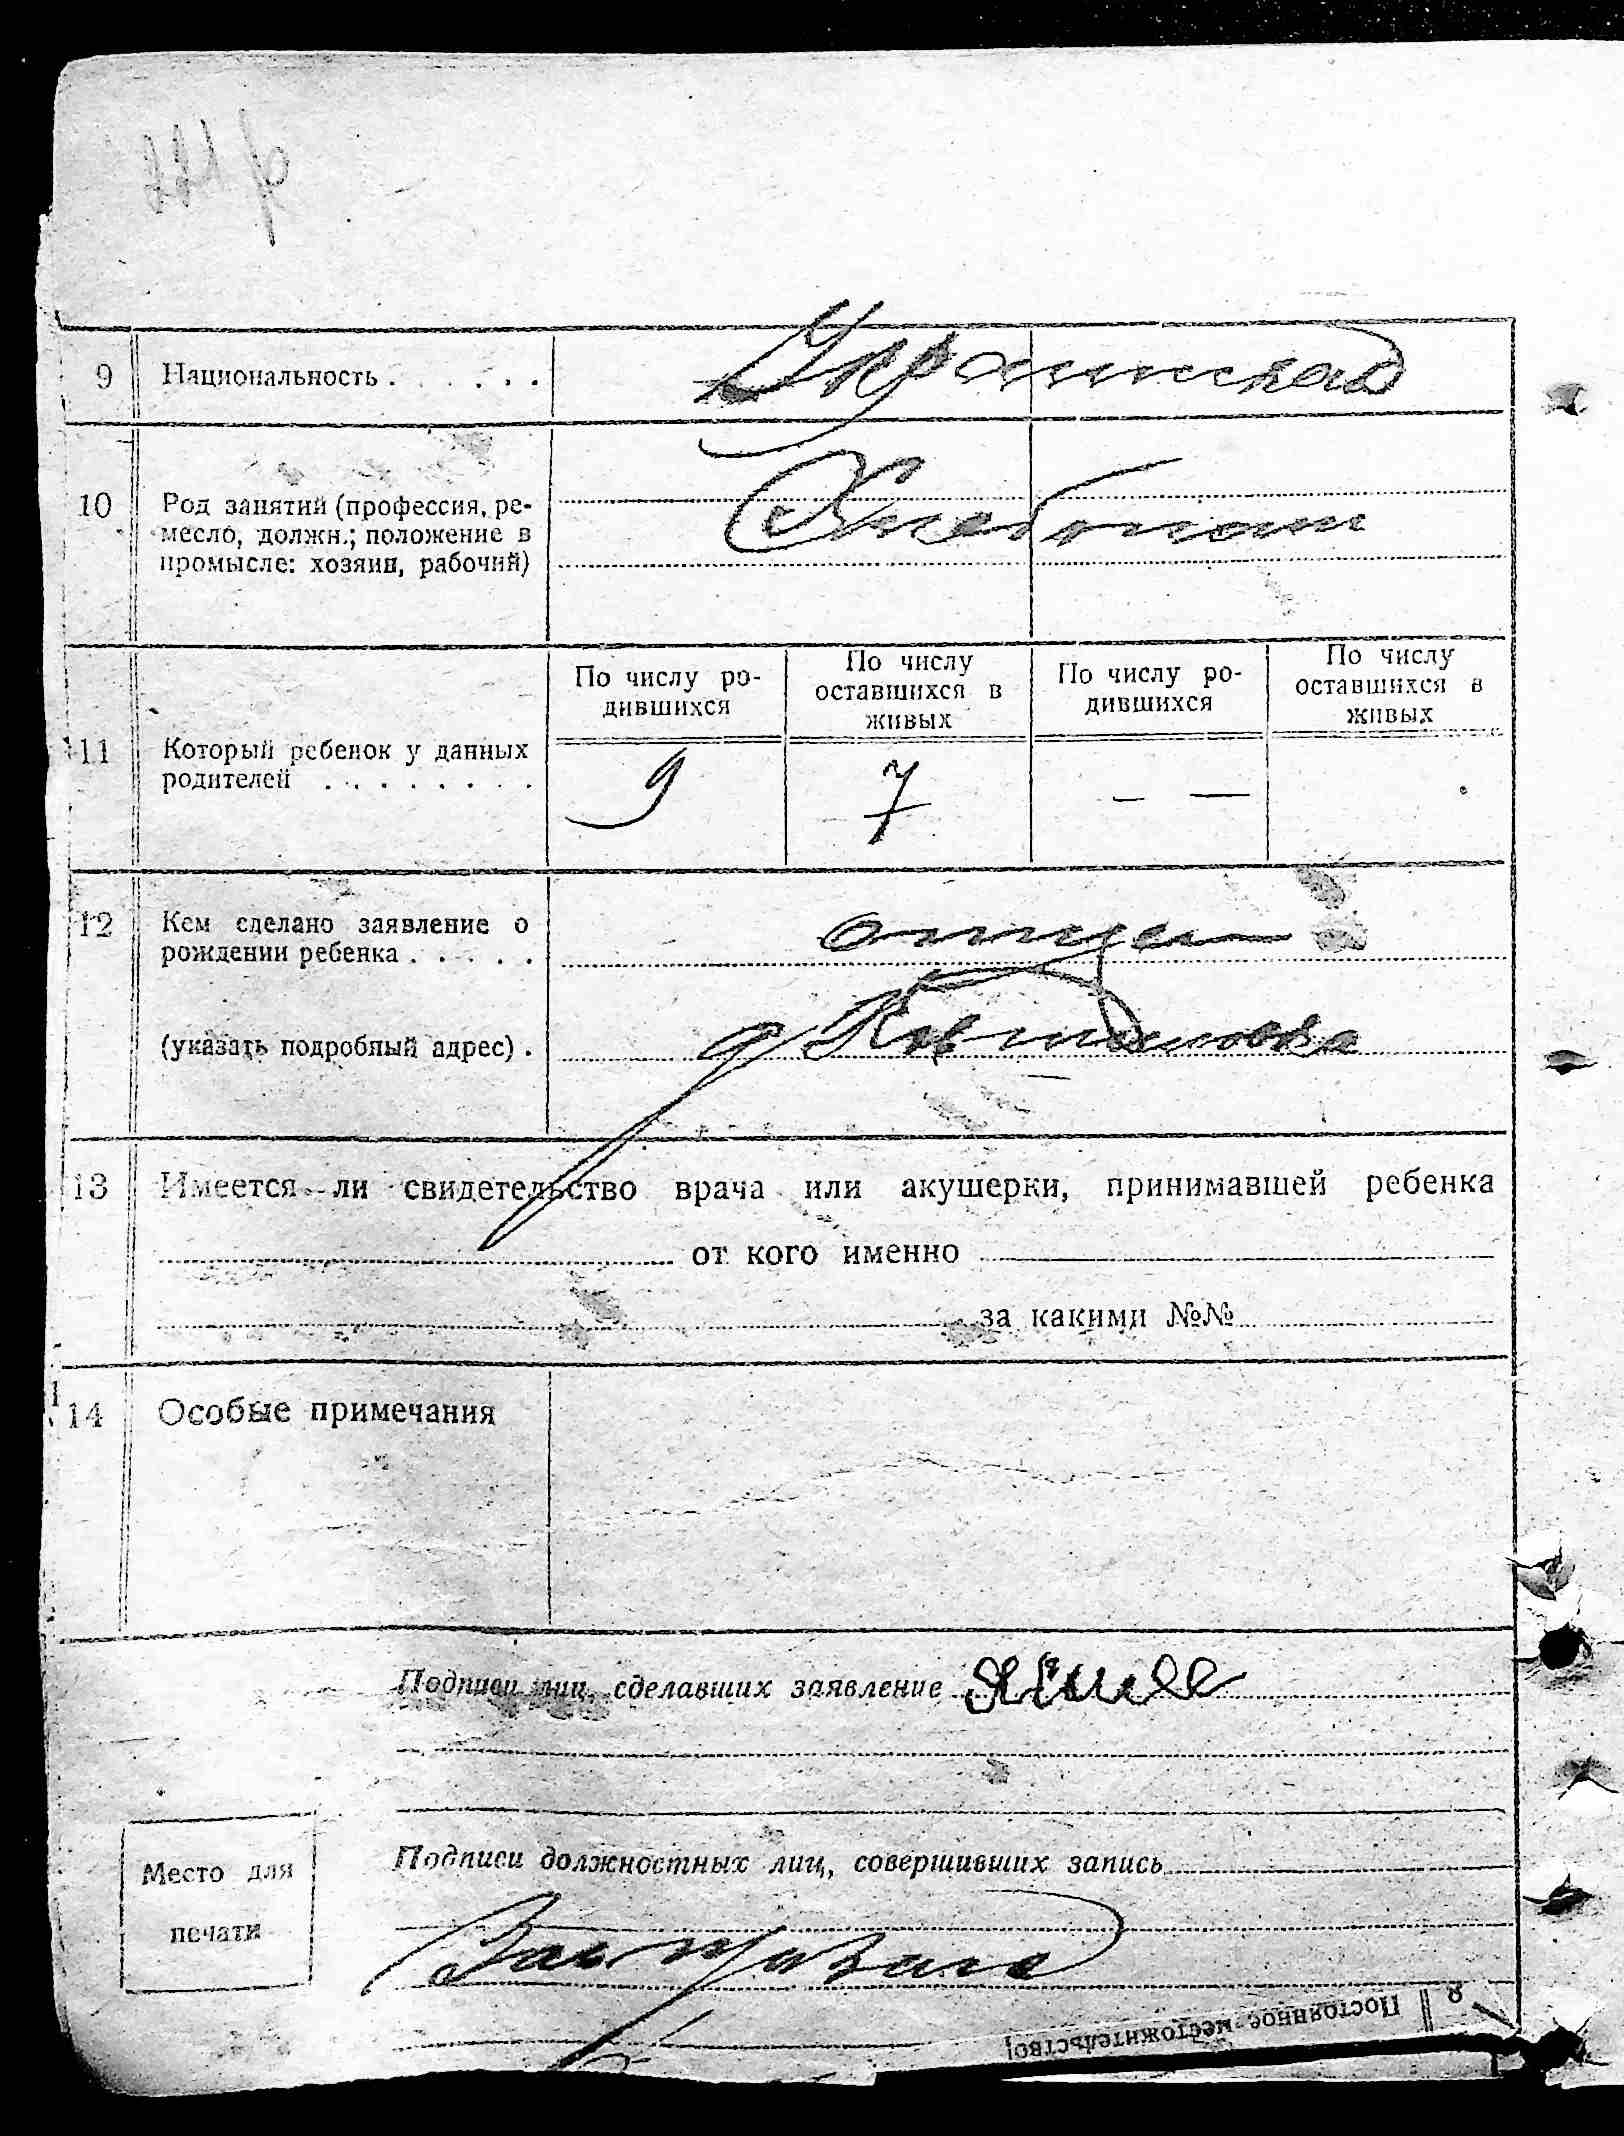 9 Национальность . . . . . . Украинская
10 Род занятий (профессия, ре-
месло, должн.; положение в
промысле: хозяин, рабочий)
Хлебопаш
По числу ро-
дившихся
По числу
оставшихся в
живых
По числу ро-
дившихся
По числу
оставшихся в
живых
11 Который ребенок у данных
родителей . . . . . . . .
9 7 — —
12 Кем сделано заявление о
рождении ребенка . . . . .
отцем
(указать подробный адрес) .
13 Имеется ли свидетельство врача или акушерки, принимавшей ребенка
от кого именно
за какими №№
14 Особые примечания
Подписи лиц, сделавших заявление
Подписи должностных лиц, совершивших запись
Место для
печати
8 Постоянное местожительство